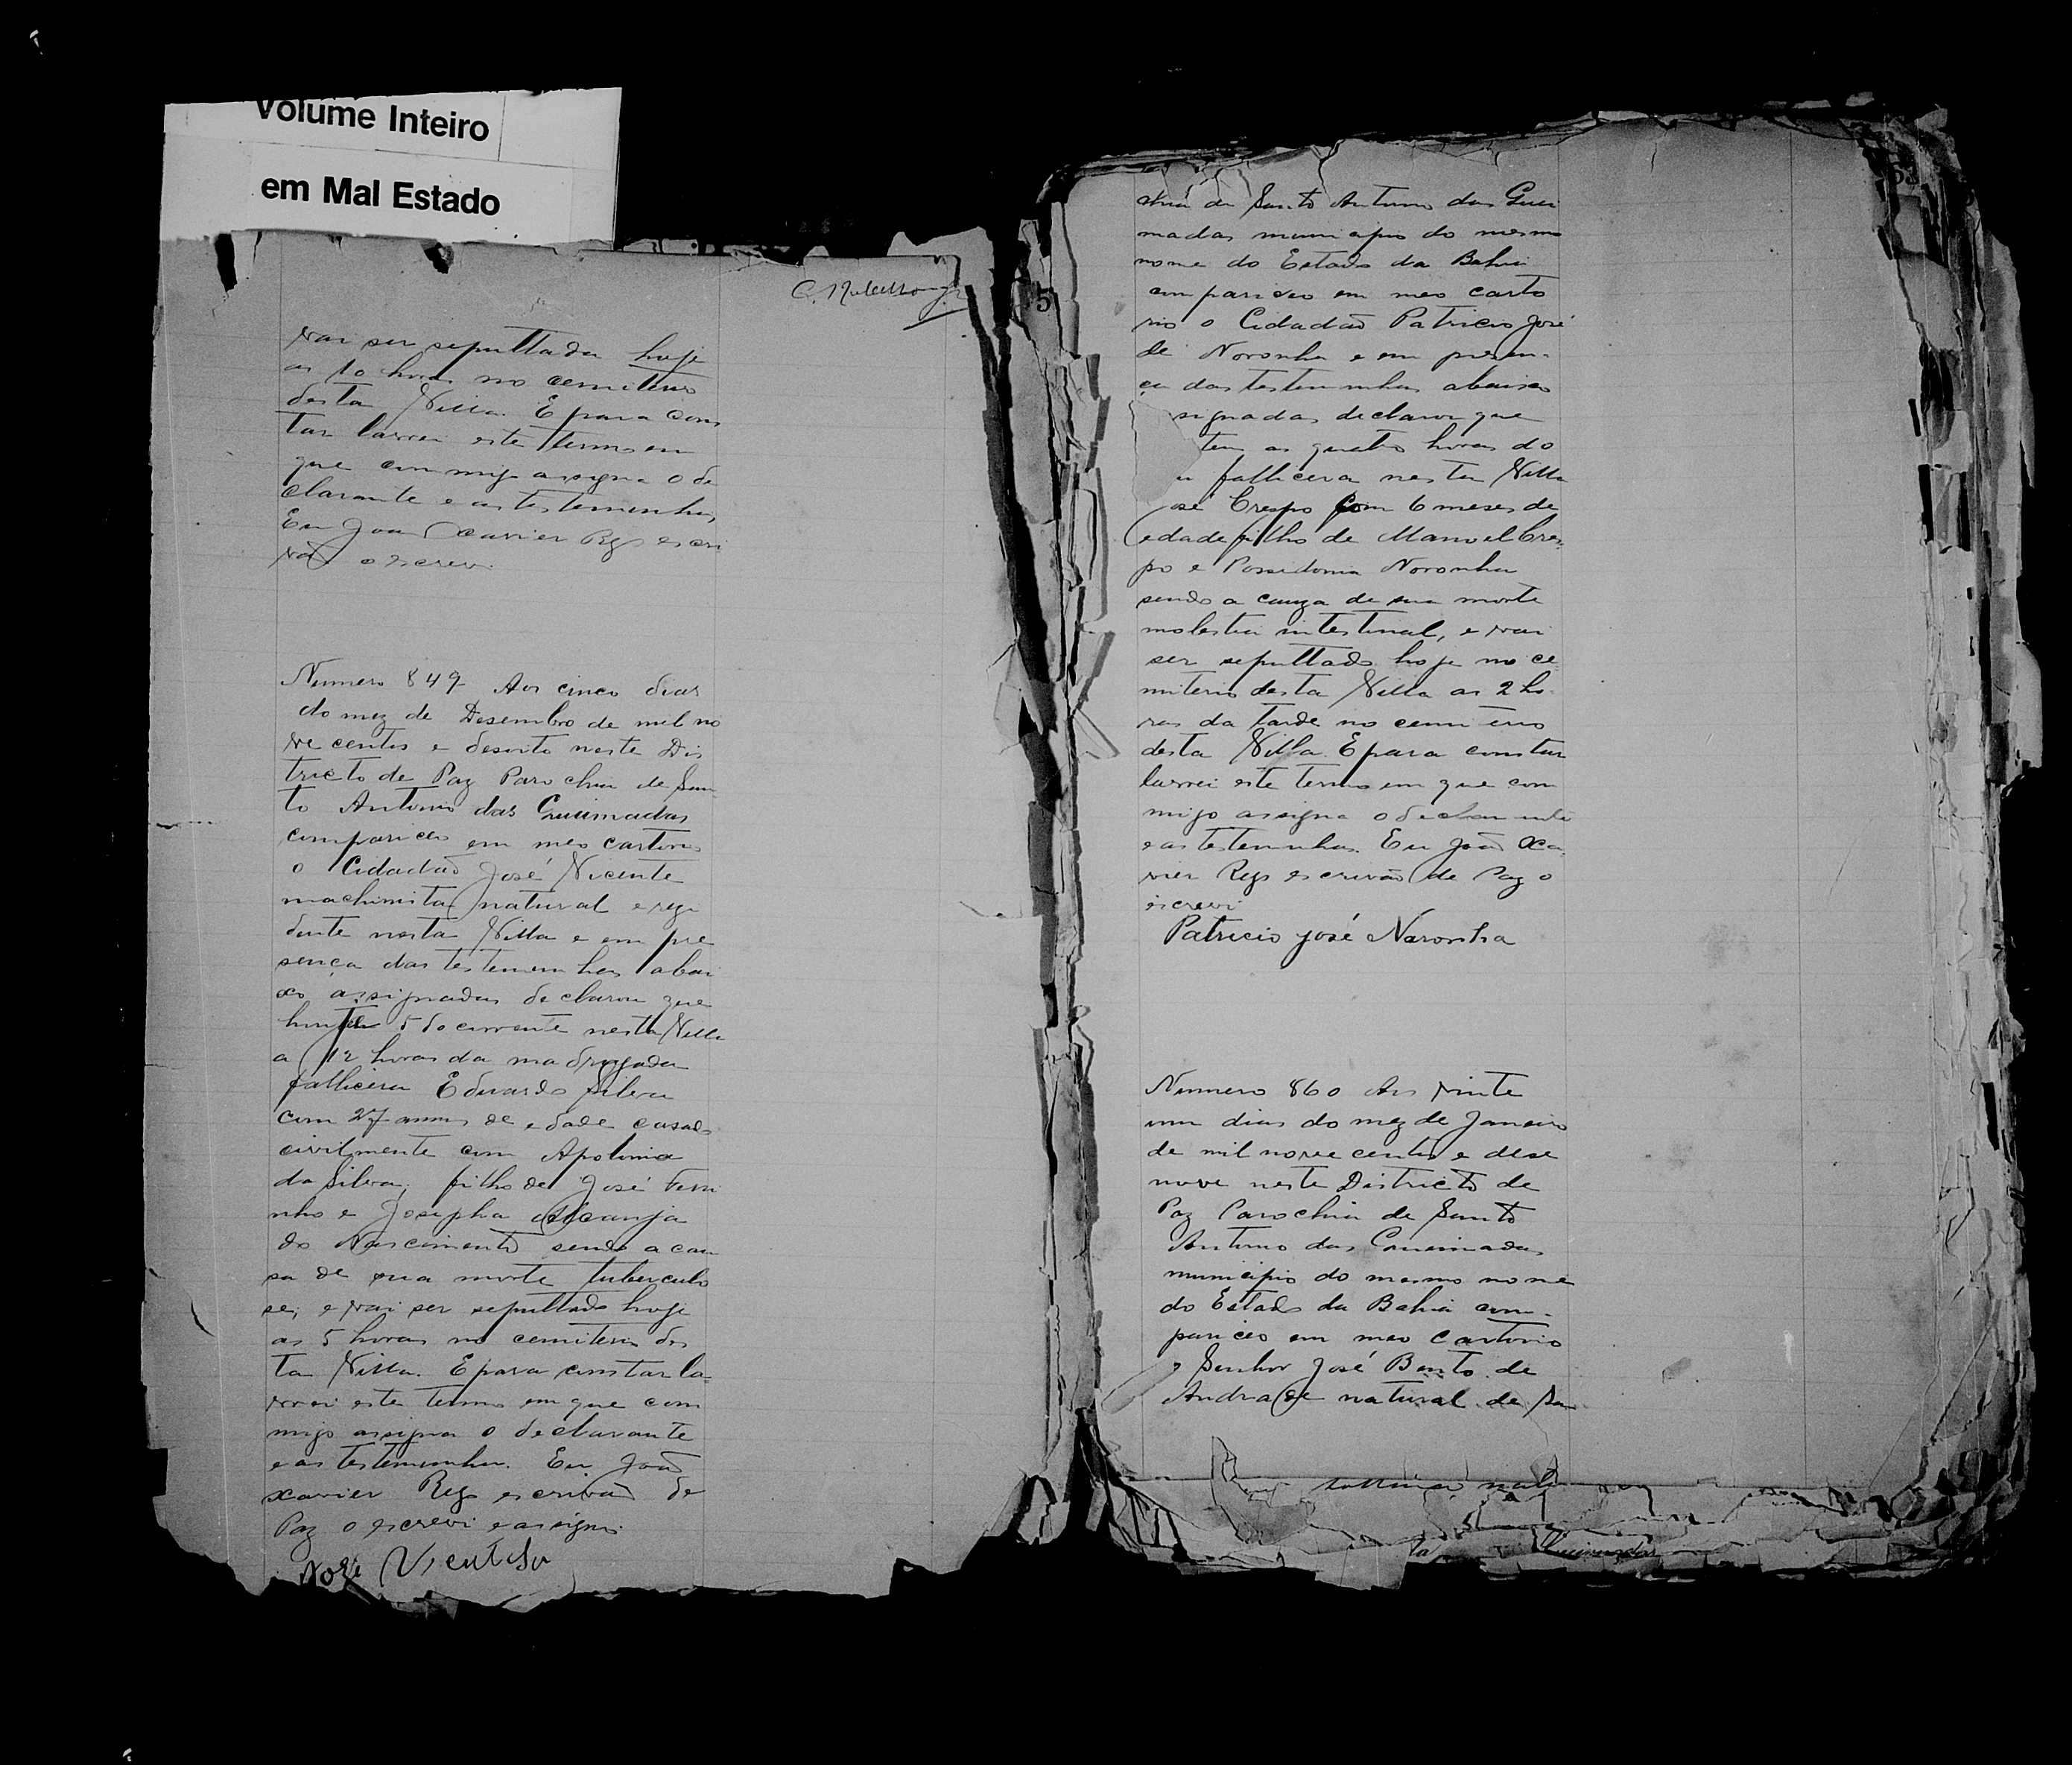 Volume Inteiro
em Mal Estado
5
vai ser sepultada hoje
as 10 horas no cemiterio
desta Villa. E para cons
tar lavrei este termo em
que commigo assigna o de
clarante e as testemunhas,
Eu João Xavier Rego escri
vão o escrevi.
Numero 849 Aos cinco dias
do mez de Desembro de mil no
ve centos e desoito neste Dis
tricto de Paz Parochia de San
to Antonio das Queimadas
compareceo em meo cartorio
o Cidadão José Vicente
machinista natural e resi
dente nesta Villa e em pre
sença das testemunhas abai
xo assignadas declarou que
5 do corrente nesta Villa
a 12 horas da madrugada
fallicera Eduardo Silva
com 27 annos de edade casado
civilmente com Apolinia
da Silva, filho de José
e Josepha
do Nascimento sendo a cau
sa de sua morte tuberculo
se, e vai ser sepultado hoje
as 5 horas no cemiterio des
ta Villa. E para constar la-
vrei este termo em que com
migo assigna o declarante
e as testemunhas. Eu João
Xavier Rego escrivão de
Paz o escrevi e assigno.
José Vicente
chia de Santo Antonio das Quei
madas municipio do mesmo
nome do Estado da Bahia
compareceo em meo carto
rio o Cidadão Patricio José
de Noronha e em presen-
ça das testemunhas abaixo
signadas declarou que
tem as quatro horas do
fallicera nesta Villa
osé Crespo com 6 meses de
edade filho de Manoel Cres-
po e Possidonia Noronha
sendo a cauza de sua morte
molestia intestinal, e vai
ser sepultado hoje no ce
miterio desta Villa as 2 ho-
ras da tarde no cemiterio
desta Villa. E para constar
lavrei este termo em que com
migo assigna o declarante
e as testemunhas. Eu João Xa-
vier Rego escrivão de Paz o
escrevi
Patricio José Noronha
Numero 860 Aos vinte
um dias do mez de Janeiro
de mil nove centos e dese
nove neste Districto de
Paz Parochia de Santo
Antonio das Queimadas
municipio do mesmo nome
do Estado da Bahia com-
pareceo em meo cartorio
o Senhor José Bento de
Andrade natural de Sa
Queimadas